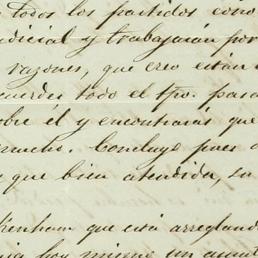 todos los partidos como
judicial y trabajarán por
razones, que creo están
todo el tpo. para
sobre él y encontrarás que
mucho. Concluye pues
que bien atendida, su
que está arreglando
hoy mismo un